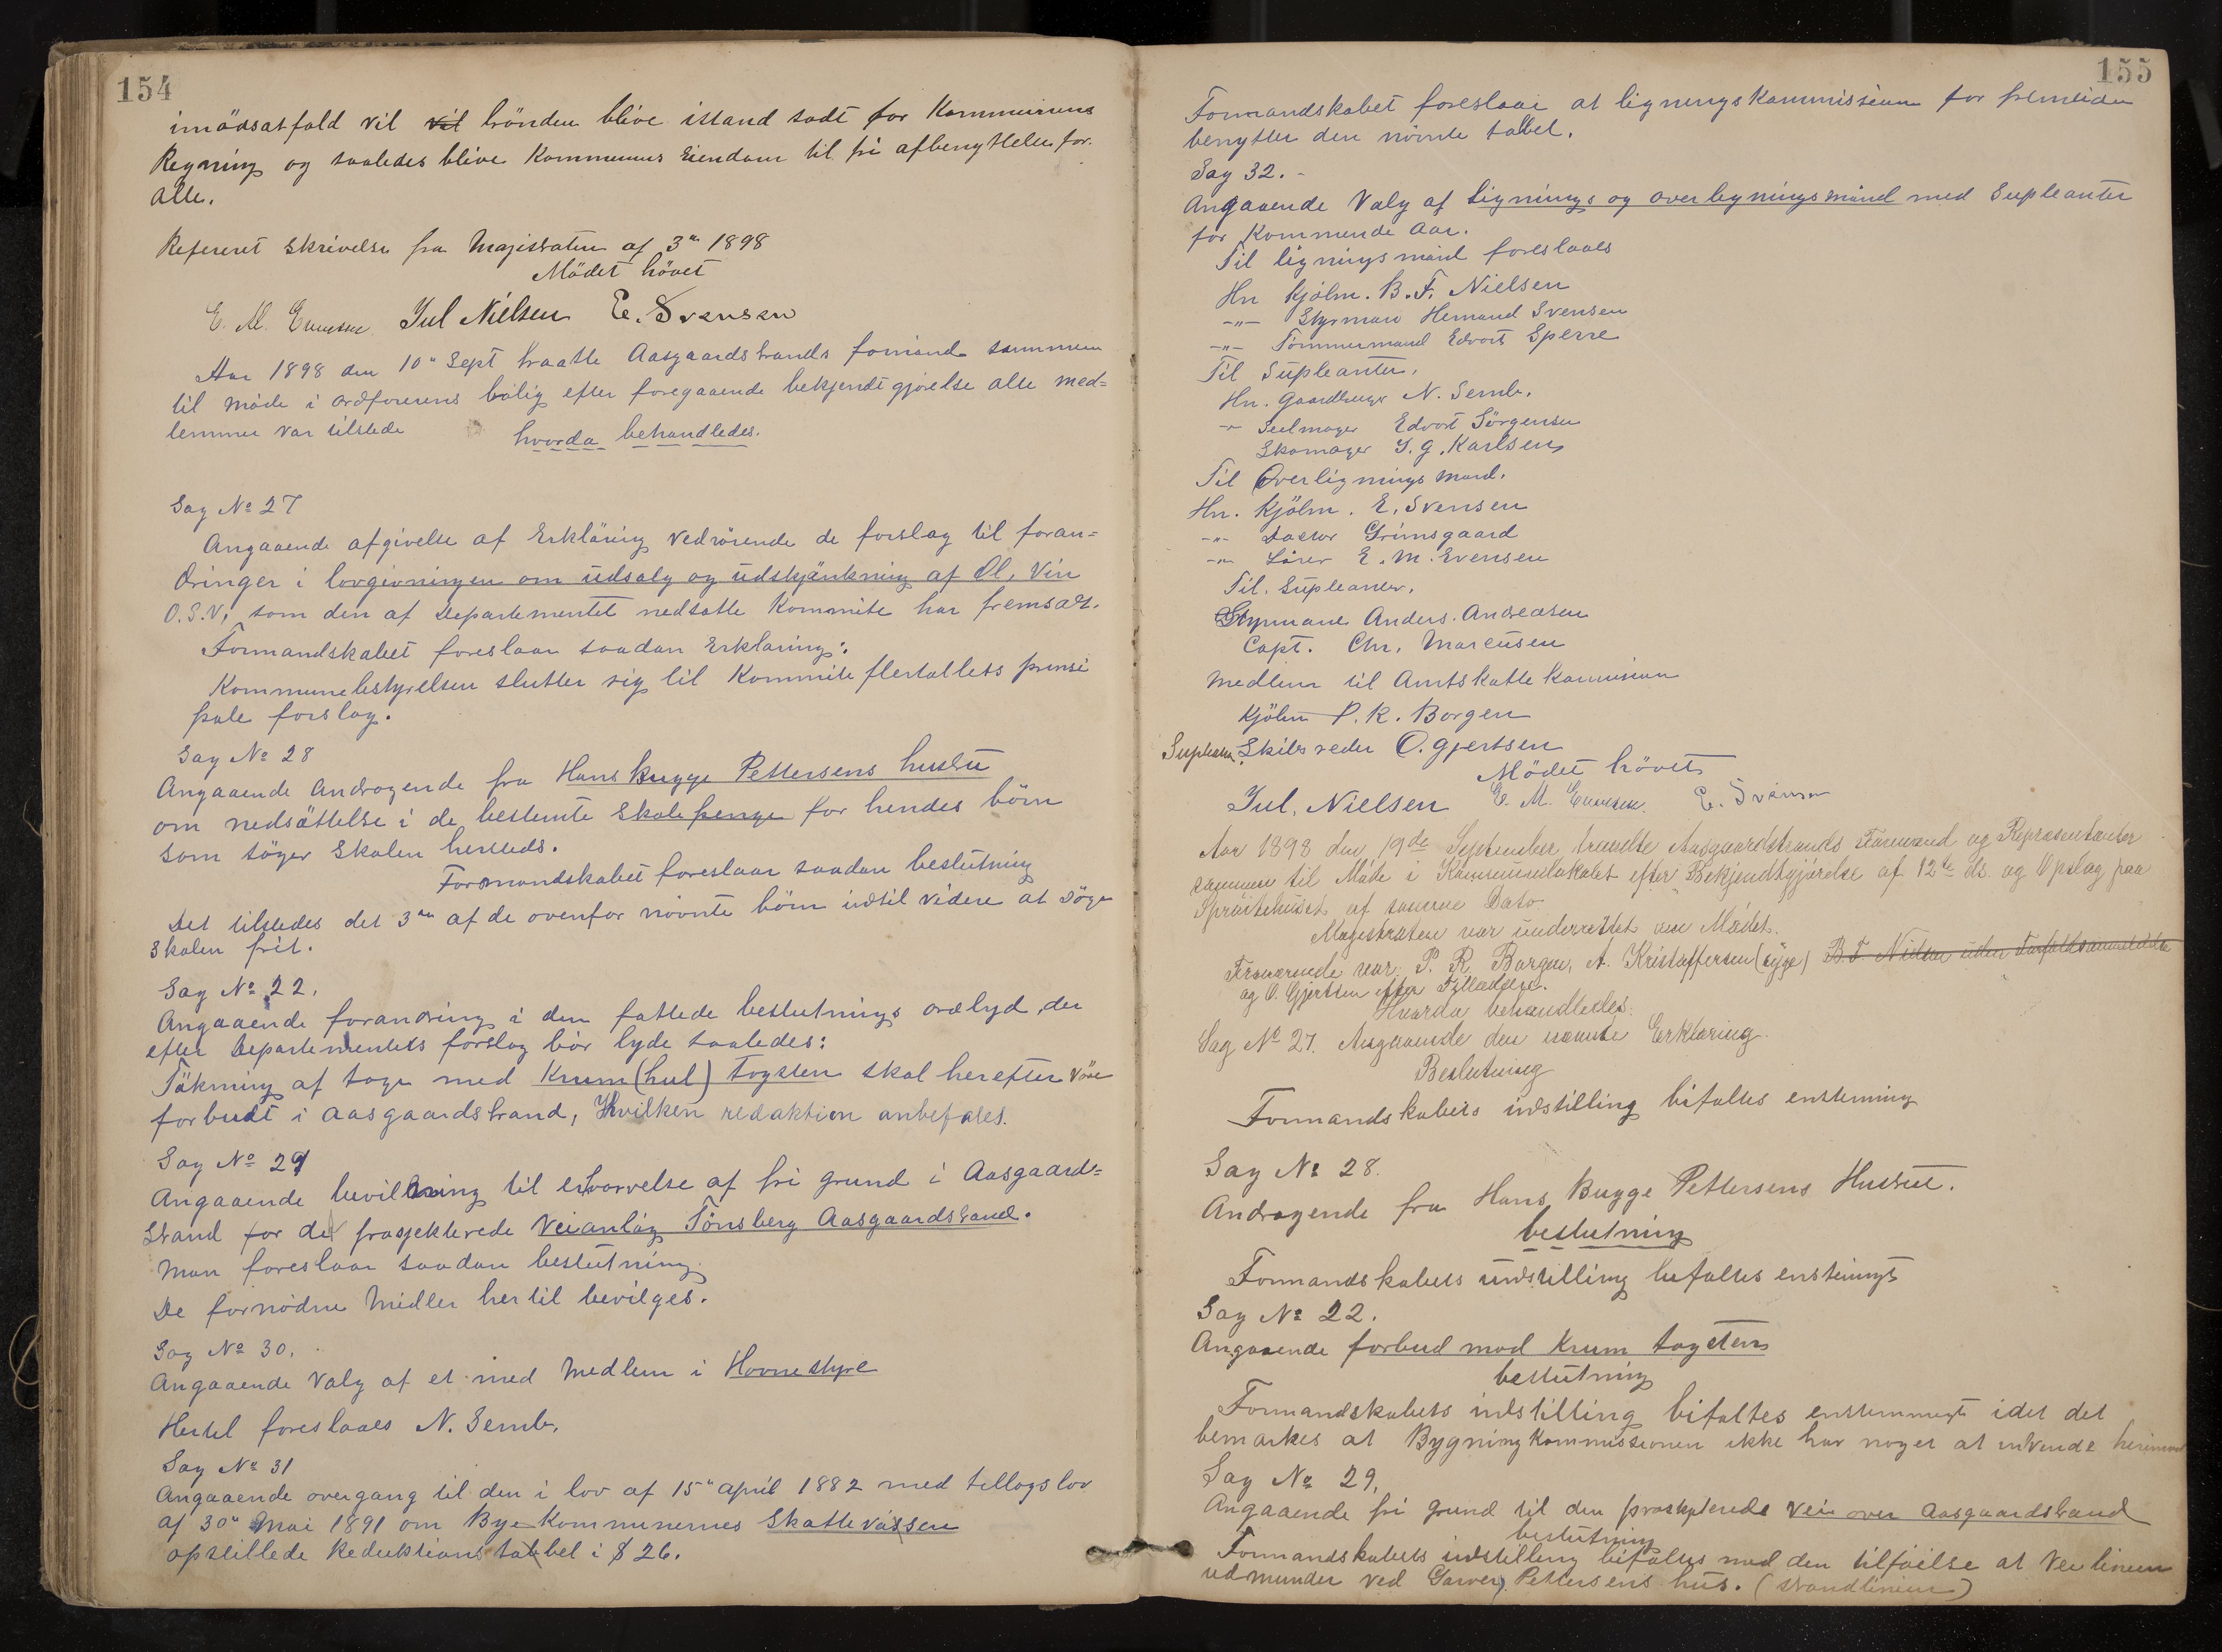 154
imödsatfald vil vil brönden blive istand sadt for Kommunens
Regning og saaledes blive Kommunens Eiendom til fri afbenyttelse for
alle.
Refereret Skrivelse fra Magistraten af 3" 1898
Mödet hövet
E. M. Evensen Jul Nielsen E. Svensen
Aar 1898 den 10" Sept traatte Aasgaardstrands formænd sammen
til Möde i ordförerens bolig efter foregaaende bekjendtgjörelse alle med=
lemmer var tilstede hvorda behandledes.
Sag No 27
Angaaende afgivelse af Erkläring vedrörende de forslag til foran=
dringer i lovgivningen om udsalg og udskjänkning af Öl, Vin
O.S.V, som den af Departementet nedsatte Kommite har fremsat.
Formandskabet foreslaar saadan Erklaring:
Kommunebestyrelsen slutter sig til Kommite flertallets prinsi
pale forslag.
Sag No 28
Angaaende Andragende fra Hans Bugge Pettersens hustru
om nedsättelse i de bestemte Skolepenge for hendes börn
som söger Skolen hersteds.
Formandskabet foreslaar saadan beslutning
Det tilstedes det 3die af de ovenfor nävnte börn indtil videre at söge
Skolen frit.
Sag No 22.
Angaaende forandring i den fattede beslutnings ordlyd, der
efter Departementets forslag bör lyde saaledes:
Täkning af tage med Krum (hul) tagsten skal herefter väre
forbudt i Aasgaardstrand, Hvilken redaktion anbefales.
Sag No 29
Angaaende bevilgning til erhvervelse af fri grund i Aasgaard=
strand for det prosjekterede Veianläg Tönsberg Aasgaardstrand.
Man foreslaar saadan beslutning
De fornödne Midler hertil bevilges.
Sag No 30.
Angaaende Valg af et med Medlem i Havnestyre
Hertil foreslaaes N. Semb.
Sag No 31
Angaaende overgang til den i lov af 15" april 1882 med tillagslov
af 30" Mai 1891 om Bye Kommunernes Skattevässen
opstillede Reduktions tabbel i § 26.
155
Formandskabet foreslaar at ligningskommissionen for fremtiden
benytter den nävnte tabel.
Sag 32. -
Angaaende Valg af Lignings og overligningsmänd med Supleanter
for Kommende Aar.
Til ligningsmänd foreslaaes
Hr Kjöbm. B. F. Nielsen
-"- Styrmand Hemand Svensen
-"- Tömmermand Edvart Sperre
Til Supleanter,
Hr. Gaardbruger N. Semb.
-"- Seilmager Edvart Jörgensen
Skomager J. G. Karlsen
Til Overligningsmænd.
Hr. Kjöbm. E. Svensen
-"- Doctor Grimsgaard
-"- Lärer E. M. Evensen
Til Supleanter.
Styrmand Anders Andreasen
Capt. Chr. Marcusen
Medlem til Amtskatte Kommision
Kjöbm P. R. Borgen
Supleant. Skibsreder O. Gjertsen
Mödet hövet
Jul. Nielsen E. M. Evensen. E. Svensen
Aar 1898 den 19de September traadte Aasgaardstrands Formænd og Repræsentanter
sammen til Möde i Kommunelokalet efter Bekjendtgjörelse af 12te ds. og Opslag paa
Spröitehuset af samme Dato
Magistraten var underrettet om Mødet.
Fraværende var P. R. Borgen, A. Kristoffersen (syge) B. F. Nielsen uden Forfaldsanmeldelse
og O. Gjertsen efter Tilladelse.
Hvorda behandledes.
Sag No 27. Angaaende den nævnte Erklæring.
Beslutning
Formandskabets indstilling bifaltes enstemmig
Sag No 28.
Andragende fra Hans Bugge Pettersens Hustru.
beslutning
Formandskabets indstilling bifaltes enstemigt
Sag No 22.
Angaaende forbud mod Krum tagsten
beslutning
Formandskabets indstilling bifaltes enstemmigt idet det
bemarkes at Bygningkommissionen ikke har noget at indvende herimod
Sag No 29.
Angaaende fri grund til den prosjekterede Vei over Aasgaardstrand
beslutning
Formandskabets indstilling bifaltes med den tilföielse at Veilinien
udmunder ved Garver Pettersens hus. (strandlinien)